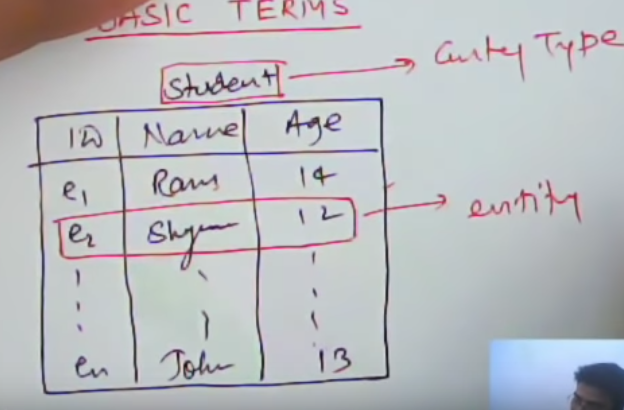 BASIC TERMS
Student → Entity Type
ID Name Age
e1 Ram 14
e2 Shyam 12 → entity
en John 13